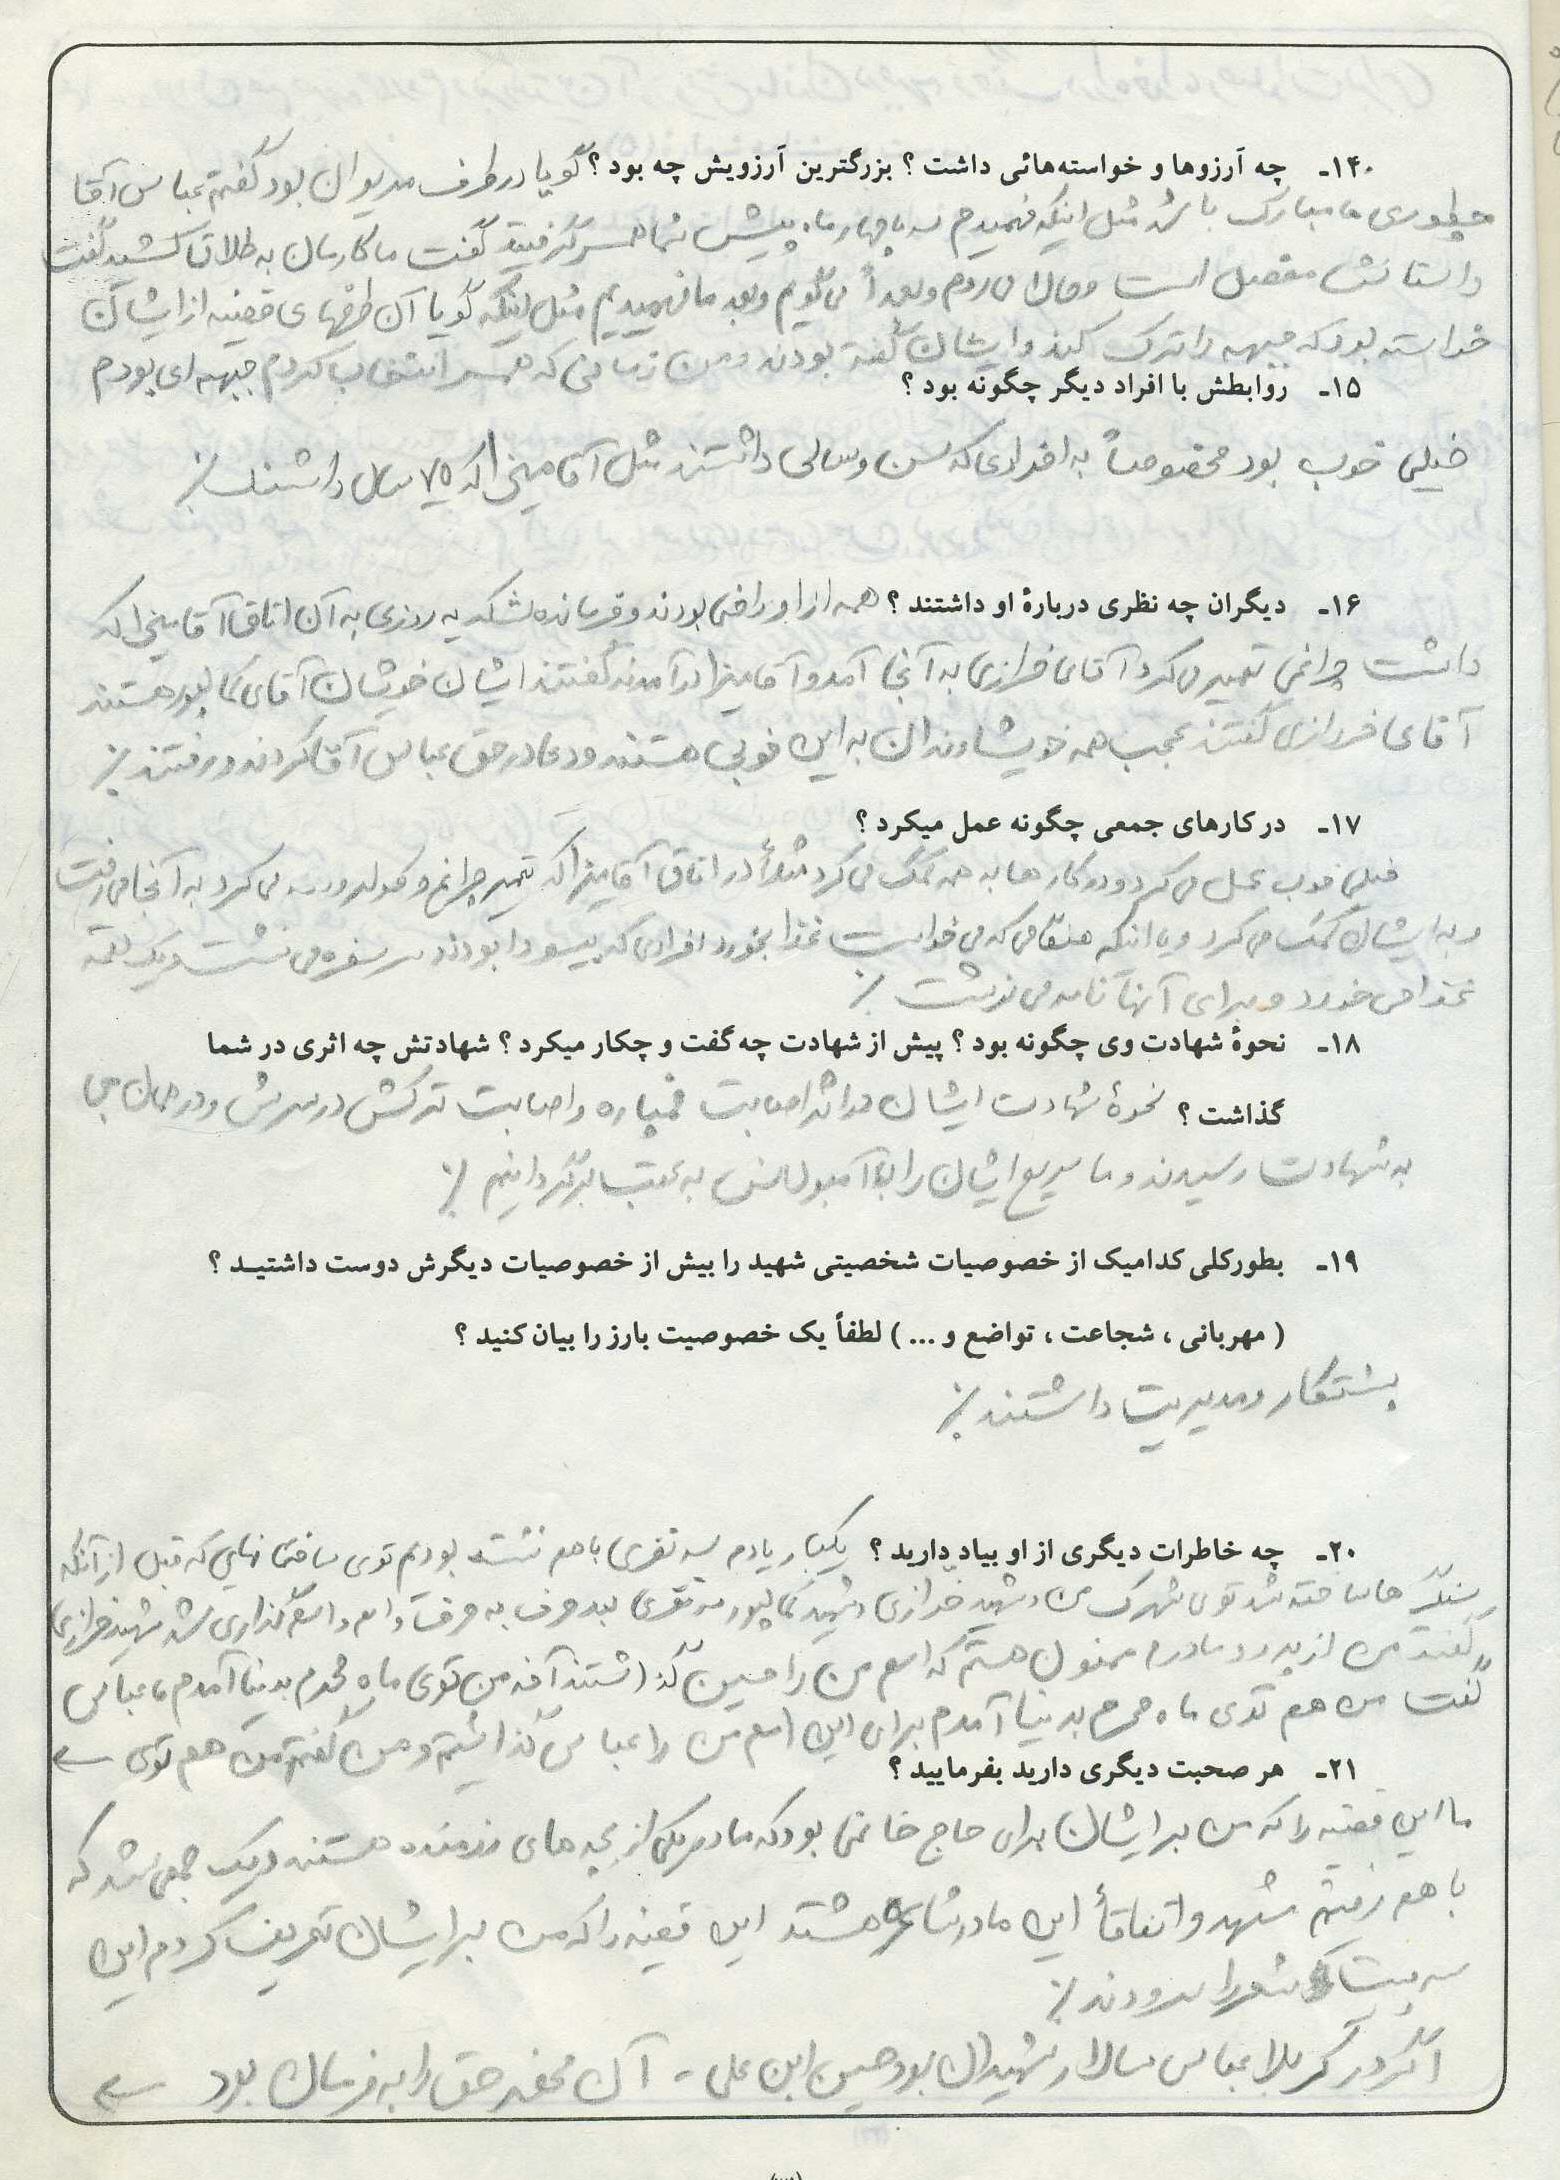 ۱۴۰- چه آرزوها و خواسته‌هائی داشت ؟ بزرگترین آرزویش چه بود ؟ گویا در طرف مریوان بود گفتم عباس آقا
چطوری ما مبارک باشد مثل اینکه فهمیدم سه یا چهار ماه پیش شما همسر گرفتید گفت ما کارمان به طلاق کشید گفت
داستانش مفصل است و حالا می‌روم و بعداً می‌گویم و بعد ما فهمیدیم مثل اینکه گویا آن طرفهای قضیه از ایشان
خواسته بود که جبهه را ترک کند و ایشان گفته بودند و من زمانی که همسر انتخاب کردم جبهه ای بودم
۱۵- روابطش با افراد دیگر چگونه بود ؟
خیلی خوب بود مخصوصاً به افرادی که سن و سالی داشتند مثل آقا میرزا که ۷۵ سال داشتند ./
۱۶- دیگران چه نظری دربارهٔ او داشتند ؟ همه از او راضی بودند و فرمانده لشکر یه روزی به آن اتاق آقا میرزا که
داشت چراغی تعمیر می‌کرد آقای خرازی به آنجا آمد و آقا میرزا در آمدند گفتند ایشان خویشان آقای کماپور هستند
آقای خرازی گفتند عجب همه خویشاوندان به این خوبی هستند و دعا در حق عباس آقا کردند و رفتند ./
۱۷- در کارهای جمعی چگونه عمل میکرد ؟
خیلی خوب عمل می‌کرد و در کارها به همه کمک می‌کرد مثلاً در اتاق آقا میرزا که تعمیر چراغ و کولر و می‌کرد به آنجا می‌رفت
و به ایشان کمک می‌کرد و یا اینکه هنگامی که می‌خواست غذا بخورد افرادی که بیسواد بودند سر سفره می‌نشست و یک لقمه
غذا می‌خورد و برای آنها نامه می‌نوشت ./
۱۸- نحوهٔ شهادت وی چگونه بود ؟ پیش از شهادت چه گفت و چکار میکرد ؟ شهادتش چه اثری در شما
گذاشت ؟ نحوهٔ شهادت ایشان در اثر اصابت خمپاره و اصابت ترکش در سرش و در همان جی
به شهادت رسیدند و ما سریع ایشان را با آمبولانس به عقب برگرداندیم ./
۱۹- بطورکلی کدامیک از خصوصیات شخصیتی شهید را بیش از خصوصیات دیگرش دوست داشتیـد ؟
( مهربانی ، شجاعت ، تواضع و ... ) لطفاً یک خصوصیت بارز را بیان کنید ؟
پشتکار و مدیریت داشتند ./
۲۰- چه خاطرات دیگری از او بیاد دارید ؟ یکبار یادم سه نفری با هم نشسته بودیم توی ساختمانهایی که قبل از آنکه
سنگرها ساخته شد توی شهرک من و شهید خرازی و شهید کماپور سه نفری بعد حرف به حرف و اسم گذاری شد شهید خرازی
گفتند من از پدر و مادرم ممنون هستم که اسم من را حسین گذاشتند آخه من توی ماه محرم بدنیا آمدم ما عباس
گفت من هم توی ماه محرم بدنیا آمدم برای این اسم من را عباس گذاشتند و من گفتم من هم توی ←
۲۱- هر صحبت دیگری دارید بفرمایید ؟
ما این قضیه را که من برایشان برای حاج خانمی بود که مادر یکی از بچه های رزمنده هستند و یک جمعی شد که
با هم رفتیم مشهد و اتفاقاً این مادر شاعر هستند این قضیه را که من برایشان تعریف کردم این
سه بیت شعر را سرودند ./
اگر در کربلا عباس سالار شهیدان بود حسین ابن علی - آن مخفر حق را به فرمان بود ←